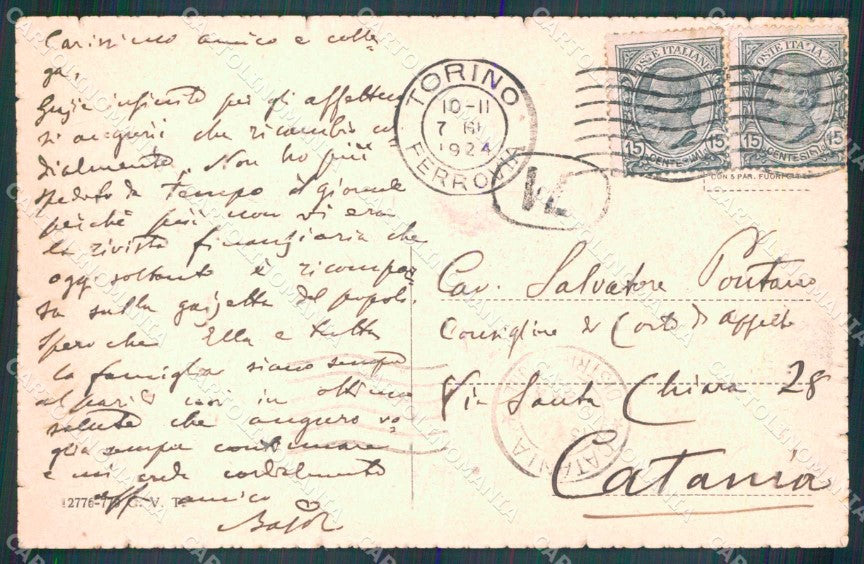 Carissimo amico e colle-
ga,
Grazie infinite per gli affettuo
si auguri che ricambio cor
dialmente. Non ho più
spedito da tempo il giornale
perché più non vi era
la rivista finanziaria che
oggi soltanto è ricompar-
sa sulla gazzetta del popolo.
Spero che Ella e tutta
la famiglia siano sempre
al pari noi in ottima
salute che auguro vo-
glia sempre continuare
e mi creda cordialmente
aff amico
12776-7 G. V. T.
TORINO
10-11
7
1924
FERROVIA
POSTE ITALIANE
15
CENTESIMI
15
POSTE ITALIANE
15
CENTESIMI
15
CON 5 PAR. FUORI CITTÀ
Cav. Salvatore Pontano
Consigliere di Corte d'Appello
Via Santa Chiara 28
Catania
CATANIA
CARTOLINOMANIA